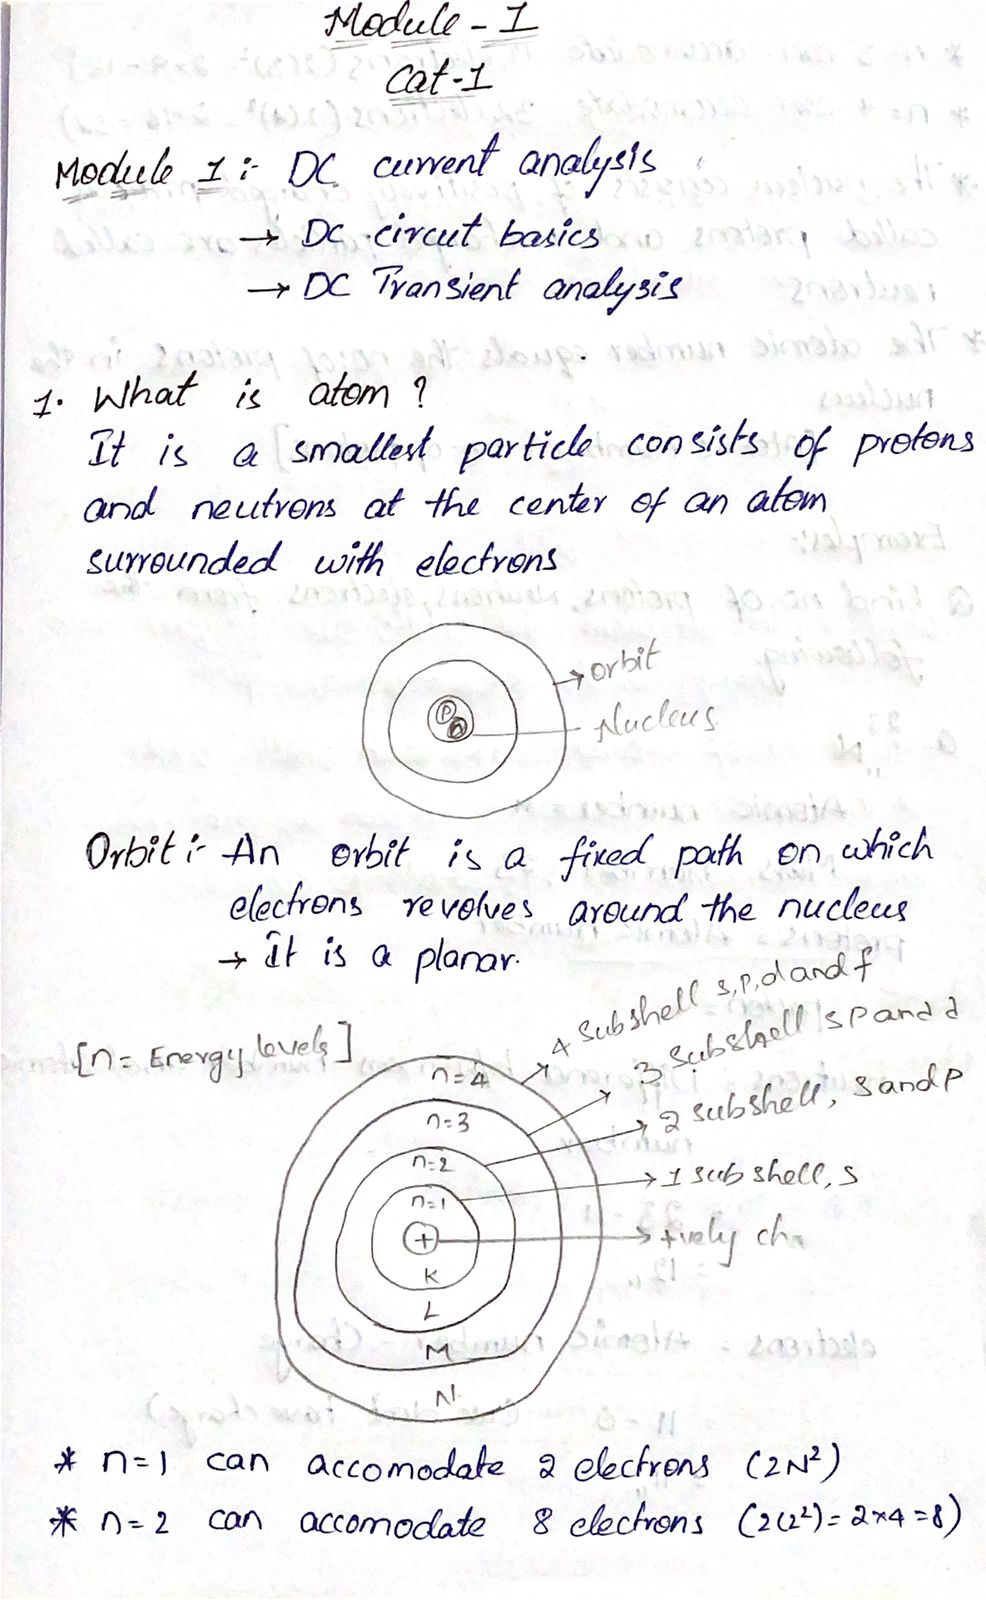 Module - I
Cat-1
Module 1 :- DC current analysis
→ DC circut basics
→ DC Transient analysis
1. What is atom ?
It is a smallest particle consists of protons
and neutrons at the center of an atom
surrounded with electrons
→ orbit
P
n
Nucleus
Orbit :- An orbit is a fixed path on which
electrons revolves around the nucleus
→ It is a planar.
[n = Energy levels]
4 subshell s,p,d and f
3 subshell s p and d
2 subshell, s and p
1 subshell, s
+vely
n=4
n=3
n=2
n=1
+
K
L
M
N
* n=1 can accomodate 2 electrons (2N²)
* n=2 can accomodate 8 electrons (2(2²)= 2×4=8)